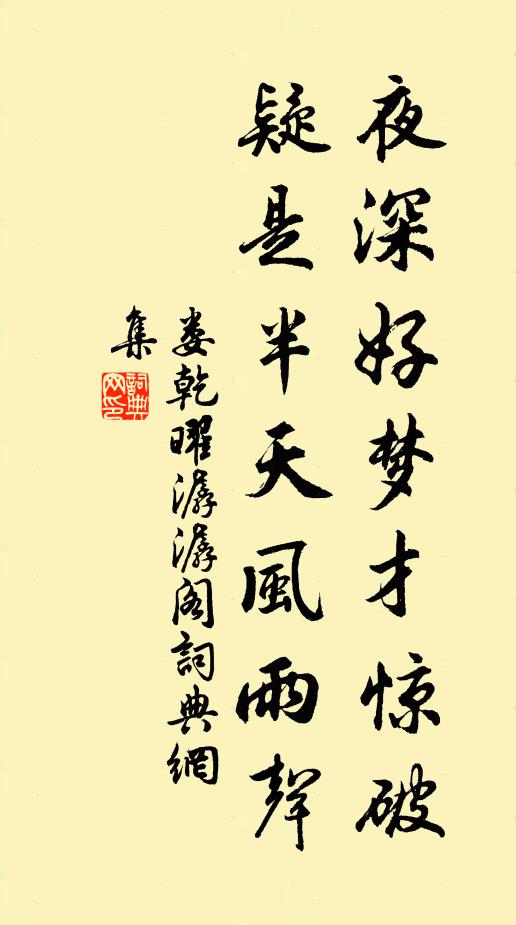 夜深好梦才惊破
疑是半天風雨聲
娄乾曜潺潺阁詞典網
集
詞典
网印